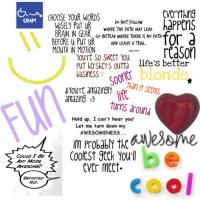 CRAM
CHOOSE YOUR WORDS
WISELY PUT YOUR
BRAIN IN GEAR
BEFORE U PUT UR
MOUTH IN MOTION
DO NOT FOLLOW
WHERE THE PATH MAY LEAD.
GO INSTEAD WHERE THERE IS NO PATH
AND LEAVE A TRAIL...
everything
happens
for a
reason
life's better
blonde
You're so sweet you
put hershey's outta
business
sooner
than it seems
life
turns around
if you're amazing!
amazing
fun
Hold up, I can't hear you!
Let me turn down my
AWESOMENESS...
awesome
Im probably the
Coolest geek You'll
ever meet
Could I Be
Any More
Awesome?
Definitely
Not.
be
cool